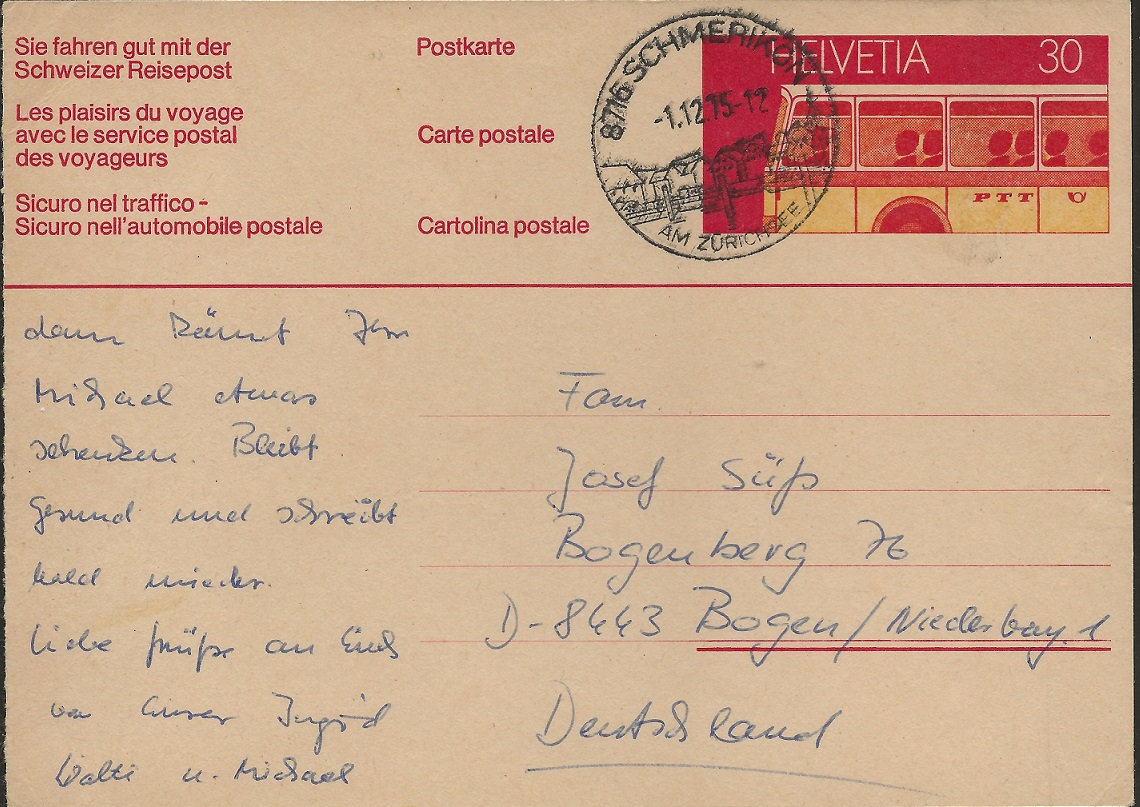 Sie fahren gut mit der
Schweizer Reisepost
Les plaisirs du voyage
avec le service postal
des voyageurs
Sicuro nel traffico -
Sicuro nell'automobile postale
Postkarte
Carte postale
Cartolina postale
8716 SCHMERIKON
-1.12.75-12
AM ZÜRICHSEE
HELVETIA 30
PTT
dann könnt Ihr
Michael etwas
schenken. Bleibt
Gesund und schreibt
bald wieder.
Liebe Grüße an Euch
von Ingrid
u. Michael
Fam.
Josef Süß
Bogenberg 76
D-8443 Bogen/Niederbay.
Deutschland